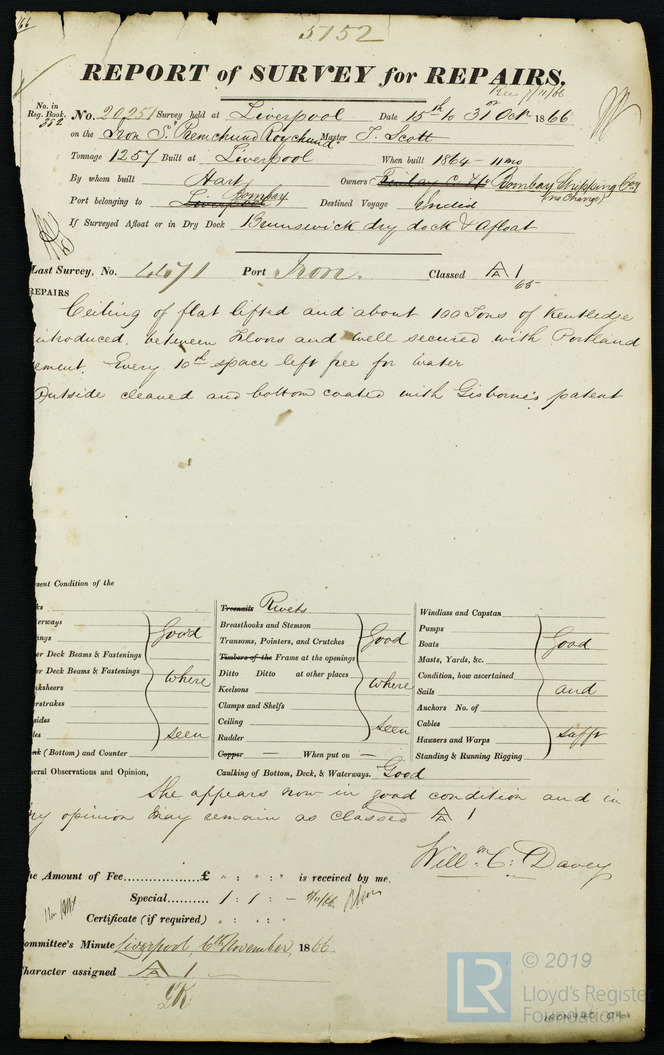 66
5752
REPORT of SURVEY for REPAIRS.
Rec 7/11/66
No. in Reg. Book. 382 No. 20251 Survey held at Liverpool Date 15th to 31st Octr 1866
on the Iron S. "Premchund Roychund" Master T. Scott
Tonnage 1257 Built at Liverpool When built 1864 - 11 mo
By whom built Hart Owners Finlay C. & Co Bombay Shipping Coy
(no Change)
Port belonging to Liverpool Bombay Destined Voyage India
If Surveyed Afloat or in Dry Dock Brunswick dry dock & afloat
Last Survey, No. 4471 Port Iron. Classed A 1
65
REPAIRS
Ceiling of flat lifted and about 100 Tons of Kentledge
introduced, between Floors and well secured with Portland
ement. Every 10th space left free for water
Outside cleaned and bottom coated with Gisborne's patent
sent Condition of the
ks
erways
ings
er Deck Beams & Fastenings
er Deck Beams & Fastenings
nksheers
erstrakes
sides
les
nk (Bottom) and Counter
Good
where
seen
Treenails Rivets
Breasthooks and Stemson
Transoms, Pointers, and Crutches
Timbers of the Frame at the openings
Ditto Ditto at other places
Keelsons
Clamps and Shelfs
Ceiling
Rudder
Copper — When put on —
Good
where
seen
Windlass and Capstan
Pumps
Boats
Masts, Yards, &c.
Condition, how ascertained
Sails
Anchors No. of
Cables
Hawsers and Warps
Standing & Running Rigging
Good
and
sufft
neral Observations and Opinion, Caulking of Bottom, Deck, & Waterways. Good
She appears now in good condition and in
my opinion may remain as classed A 1
Willm. C. Davey
he Amount of Fee................£ " : " : " is received by me.
Special.......... 1 : 1 : —
Certificate (if required) " : " : "
ommittee's Minute Liverpool, 6th November, 1866.
haracter assigned A 1
LR
© 2019
Lloyd's Register
Foundation